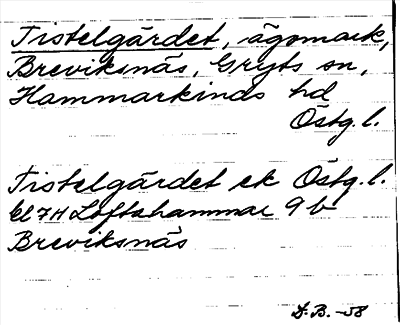 Tistelgärdet, ägomark,
Breviksnäs, Gryts sn,
Hammarkinds hd
Östg. l.
Tistelgärdet ek Östg. l.
bl 7H Loftahammar 9 b
Breviksnäs
D.B. -58